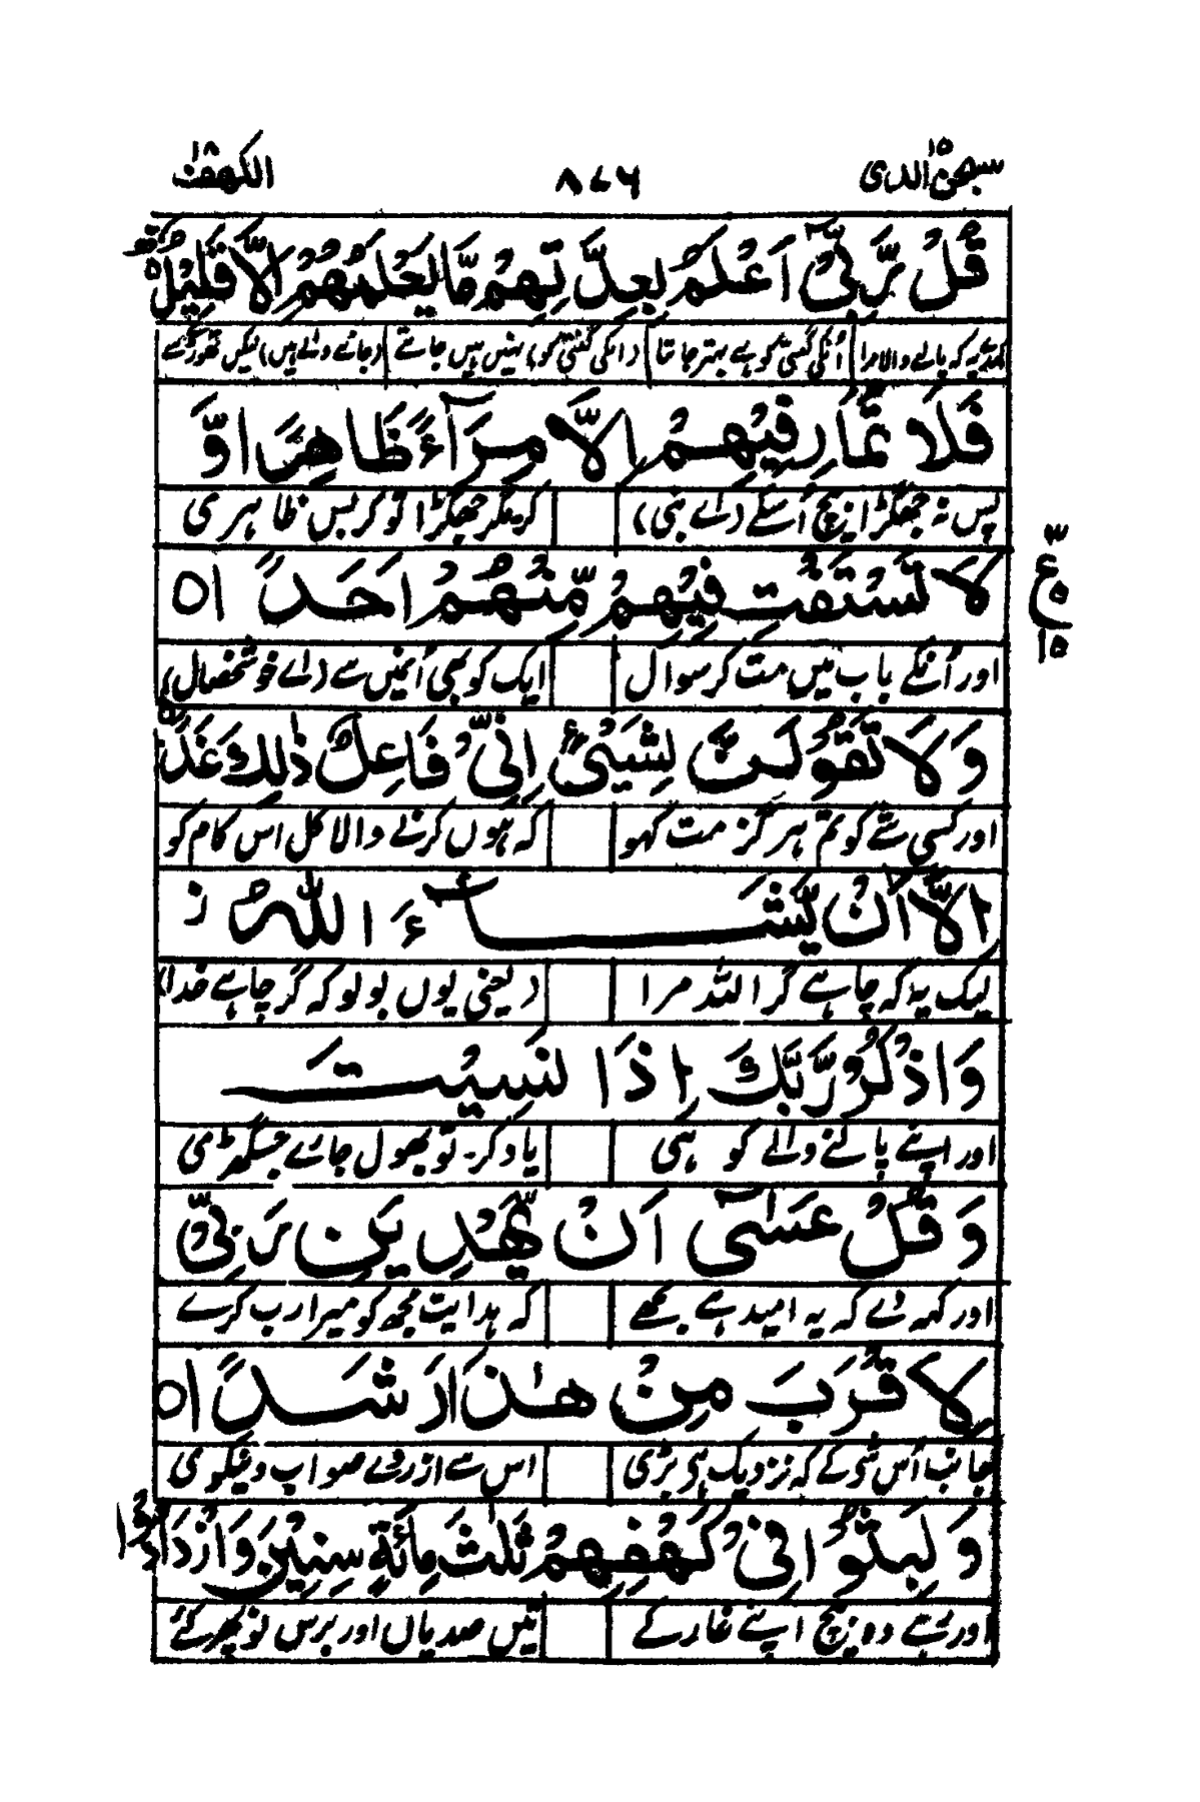 سبحن الذی ۱۵ ۸۷۶ الکهف ۱۸
قُلْ رَّبِّيْٓ اَعْلَمُ بِعِدَّ تِهِمْ مَّا يَعْلَمُهُمْ اِلَّا قَلِيْلٌ
کہدے یہ کہ پالنے والا مرا اُنکی گنتی کو ہے بہتر جانتا (انکی گنتی کو) نہیں ہیں جانتے (جاننے والے ہیں) لیکن تھوڑے
فَلَا تُمَارِ فِيْهِمْ اِلَّا مِرَآءً ظَاهِرًا وَّ
پس نہ جھگڑا بیچ اُنکے (اے نبی) کر مگر جھگڑا تو کر بس ظاہری
لَا تَسْتَفْتِ فِيْهِمْ مِّنْهُمْ اَحَدًا ۝
۳ ع ۵ ۱۵
اور اُنکے باب میں مت کر سوال ایک کو بھی اُنمیں سے (اے خوشخصال)
وَلَا تَقُوْلَنَّ لِشَيْءٍ اِنِّيْ فَاعِلٌ ذٰلِكَ غَدًا
اور کسی شے کو تم ہرگز مت کہو کہ ہوں کرنے والا کل اس کام کو
اِلَّآ اَنْ يَّشَآءَ اللّٰهُ ز
لیک یہ کہ چاہے گر اللہ مرا (یعنی یوں بولو کہ گر چاہے خدا)
وَاذْكُرْ رَّبَّكَ اِذَا نَسِيْتَ
اور اپنے پالنے والے کو ہی یاد کر۔ تو بھول جائے جس گھڑی
وَ قُلْ عَسٰٓى اَنْ يَّهْدِيَنِ رَبِّيْ
اور کہہ دے کہ یہ امید ہے مجھے کہ ہدایت مجھ کو میرا رب کرے
لِاَقْرَبَ مِنْ هٰذَا رَشَدًا ۝
جانب اُس شے کے کہ نزدیک ہی بڑی اس سے از روے صواب و نیکوی
وَ لَبِثُوْا فِيْ كَهْفِهِمْ ثَلٰثَ مِائَةٍ سِنِيْنَ وَازْدَادُوْا
اور رہے وہ بیچ اپنے غار کے تین صدیاں اور برس نو پھر گئے